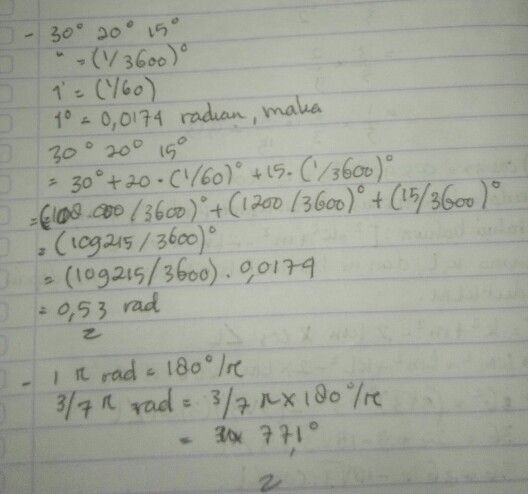 - 30° 20° 15°
" = (1/3600)°
1' = (1/60)
1° = 0,0174 radian, maka
30° 20° 15°
= 30° + 20 . (1/60)° + 15 . (1/3600)°
= (108.000/3600)° + (1200/3600)° + (15/3600)°
= (109215/3600)°
= (109215/3600) . 0,0174
= 0,53 rad
2
- 1 π rad = 180°/π
3/7 π rad = 3/7 π x 180°/π
= 77,1°
2